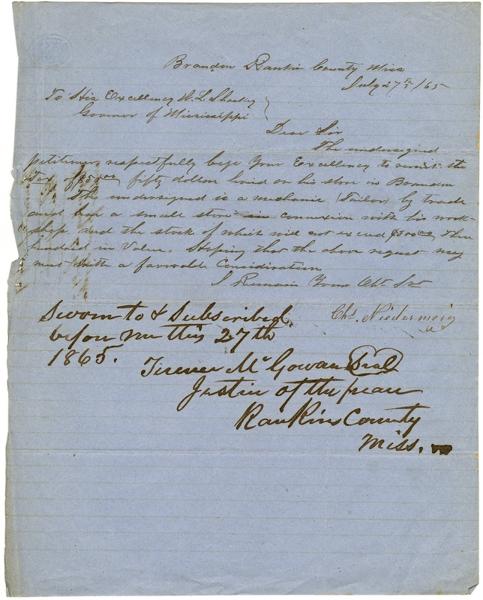 Brandon Rankin County Miss
July 27th /65
To His Excellency W. L. Sharkey
Governor of Mississippi
Dear Sir
The undersigned
petitioner respectfully begs Your Excellency to remit the
Tax of $50.00 fifty dollars levied on his store in Brandon
The undersigned is a mechanic (Tailor) by trade
and has a small store in connexion with his work
shop and the stock of which will not exceed $300.00 three
hundred in Value. Hoping that the above request may
meet with a favorable Consideration
I Remain Yours Obt Svt
Chs. Niedermeig
Sworn to & Subscribed
before me this 27th
1865.
McGowan Seal
Justice of the peace
Rankin County
Miss.